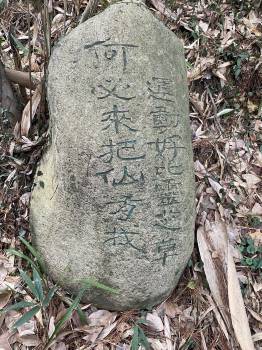 運動好比靈芝草
何必來把仙方找